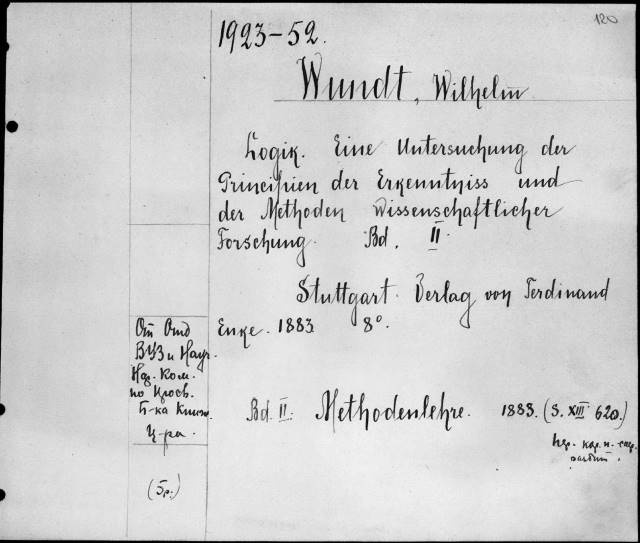 120
1923-52.
Wundt, Wilhelm
Logik. Eine Untersuchung der
Principien der Erkenntniss und
der Methoden wissenschaftlicher
Forschung. Bd. II.
Stuttgart. Verlag von Ferdinand
Enke. 1883 8°.
От Отд
ВУЗ и Науч.
Нар. Ком.
по Просв.
Б-ка Книж.
Ц-ра.
(5р.)
Bd. II. Methodenlehre. 1883. (S. XIII 620.)